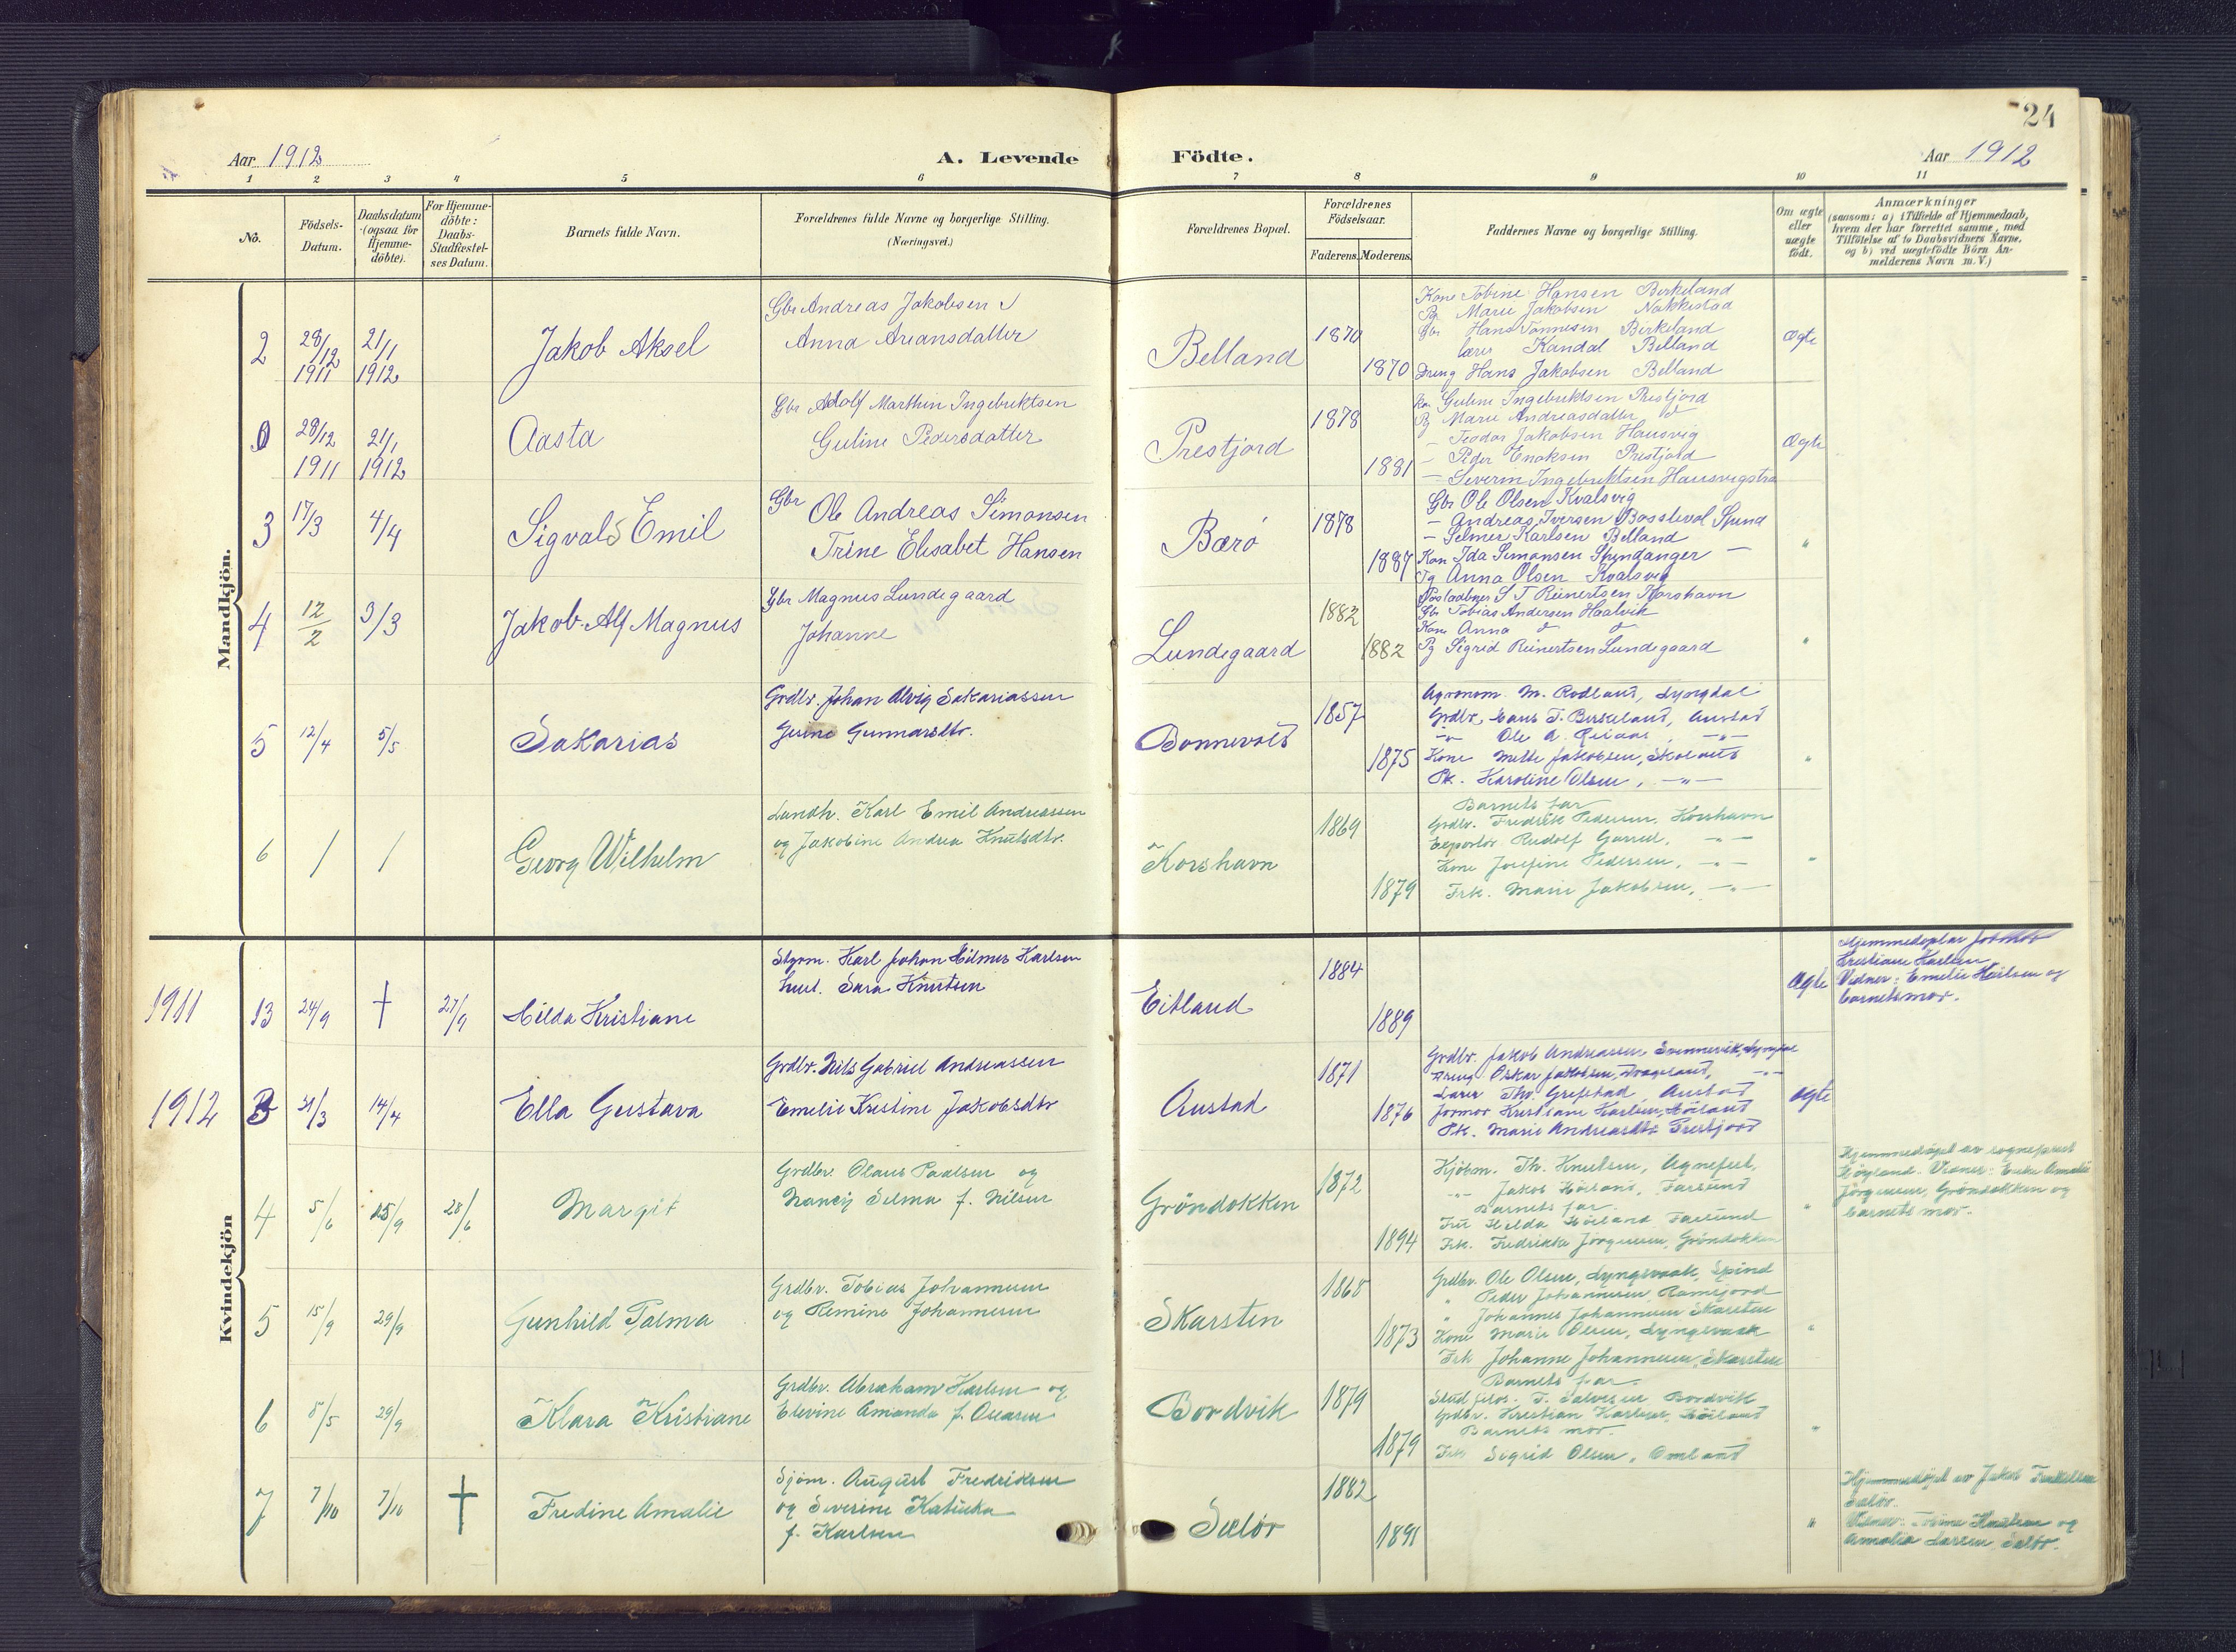 24
Aar 1912
A. Levende
Födte.
Aar 1912
1 2 3 4 5 6 7 8 9 10 11
No.
Födsels-
Datum.
Daabsdatum
(ogsaa for
Hjemme-
döbte).
For Hjemme-
döbte:
Daabs-
Stadfæstel-
ses Datum.
Barnets fulde Navn.
Forældrenes fulde Navne og borgerlige Stilling.
(Næringsvei.)
Forældrenes Bopæl.
Forældrenes
Födselsaar.
Faderens. Moderens.
Faddernes Navne og borgerlige Stilling.
Om ægte
eller
uægte
födt.
Anmærkninger
(saasom: a) i Tilfælde af Hjemmedaab,
hvem der har forrettet samme, med
Tilföielse af to Daabsvidners Navne,
og b) ved uægtefödte Börn An-
melderens Navn m.V.)
Mandkjön.
2
28/12
1911
21/1
1912
Jakob Aksel
Gbr Andreas Jakobsen
Anna Areansdatter
Belland
1870
1870
Kone Tobine Hansen Birkeland
Pg. Marie Jakobsen Nakkestad
Gbr Hans Tønnesen Birkeland
lærer Kandal Belland
Dreng Hans Jakobsen Belland
Ægte
28/12
1911
21/1
1912
Aasta
Gbr Adolf Marthin Ingebrektsen
Guline Pedersdatter
Prestjord
1878
1881
Kon Guline Ingebrektsen Prestjord
Pg Marie Andreasdatter
— Teodor Jakobsen Hausvig
— Peder Enoksen Prestjord
— Severin Ingebrektsen Hausvigstra
Ægte
3
17/3
4/4
Sigvald Emil
Gbr Ole Andreas Simonsen
Trine Elisabet Hansen
Bærø
1878
1887
Gbr Ole Olsen Kvalsvig
— Andreas Iversen Bossevol Spind
— Selmer Karlsen Belland
Kon Ida Simonsen Spindanger —
Pg Anna Olsen Kvalsvig
"
4
12/2
3/3
Jakob Alf Magnus
Gbr Magnus Lundegaard
Johanne
Lundegaard
1882
1882
S T Reinertsen Korshavn
Gbr Tobias Andersen Haalvik
Kone Anna
Pg Sigrid Reinertsen Lundegaard
"
5
12/4
5/5
Sakarias
Grdbr. Johan Alvig Sakariassen
Gunnarsdtr.
Bonnevold
1857
1875
Agronom M. Rodland, Lyngdal
Grdbr. Hans T. Birkeland, Austad
—"— Ole A. —"—
Kone Mette Jakobsen, Skoland
Pk. Karoline Olsen, —"—
"
6
/
/
Georg Wilhelm
Landh. Karl Emil Andreassen
og Jakobine Andrea Knutsdtr.
Korshavn
1869
1879
Barnets far
Grdbr. Fredrik Pedersen, Korshavn
Exportör Rudolf Garred, —"—
Kone Josefine Pedersen, —"—
Frk. Marie Jakobsen, —"—
"
Kvindekjön
1911
13
24/9
†
27/9
Hilda Kristiane
Styrm. Karl Johan Hilmer Karlsen
hust. Sara Knutsen
Eitland
1884
1889
Ægte
Kristiane Karlsen
Vidner: Emelie Karlsen og
barnets mor.
1912
3
31/3
14/4
Ella Gustava
Grdbr. Nils Gabriel Andreassen
Emelie Kristine Jakobsdtr
Austad
1871
1876
Grdbr. Jakob Andreassen
Dreng Oskar Jakobsen, —"—
Lærer Th. Grefstad, Austad
Jormor Kristiane Karlsen, Höiland
Pk. Marie Andreasdtr Prestjord
Ægte
4
5/6
15/9
28/6
Margit
Grdbr. Olaus Paulsen og
Nancy Selma f. Nilsen
Gröndokken
1872
1894
Kjöbm. Th. Knutsen, Agnefest,
—"— Jakob Höiland, Farsund
Barnets far
Fru Hilda Höiland Farsund
Frk. Fredrikke Jörgensen, Gröndokken
"
Hjemmedöpt av sogneprest
Högland. Vidner: Enke Amalie
Jörgensen, Gröndokken og
barnets mor.
5
15/9
29/9
Gunhild Talma
Grdbr. Tobias Johannesen
og Remine Johannesen
Skarsten
1868
1873
Grdbr. Ole Olsen, Lyngsvaak, Spind
" Peder Johannesen
" Johannes Johannesen Skarsten
Kone Marie Olsen, Lyngsvaak
Frk Johanne Johannesen, Skarsten
"
6
5/5
29/9
Klara Kristiane
Grdbr. Abraham Karlsen og
Elevine Amanda f.
Bordvik
1879
1879
Barnets far
T. Salvesen Bordvik
Grdbr. Kristian Karlsen, Höiland
Barnets mor.
Frk Sigrid Olsen, Omland
"
7
7/10
7/10
†
Fredine Amalie
Sjöm. August Fredriksen
og Severine Katinka
f. Karlsen
Sælör
1882
1891
"
Hjemmedöpt av Jakob
Sælör.
Vidner: og
Amalie Larsen Sælör.